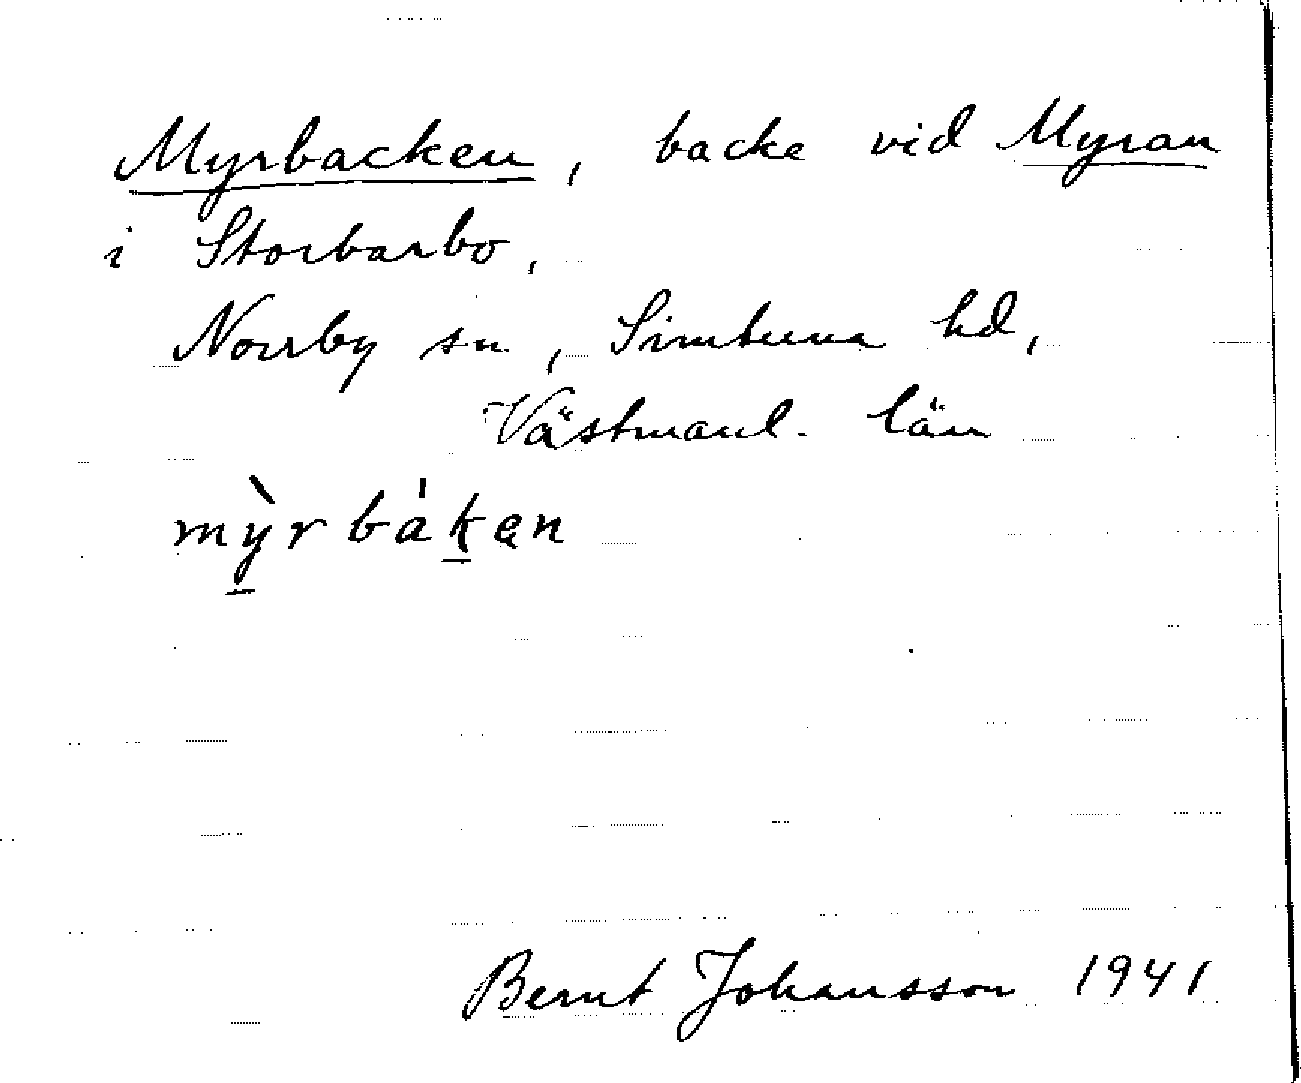 Myrbacken, backe vid Myran
i Storbarbo,
Norrby sn, Simtuna hd,
Västmanl. län
mỳrbákən
Bernt Johansson 1941